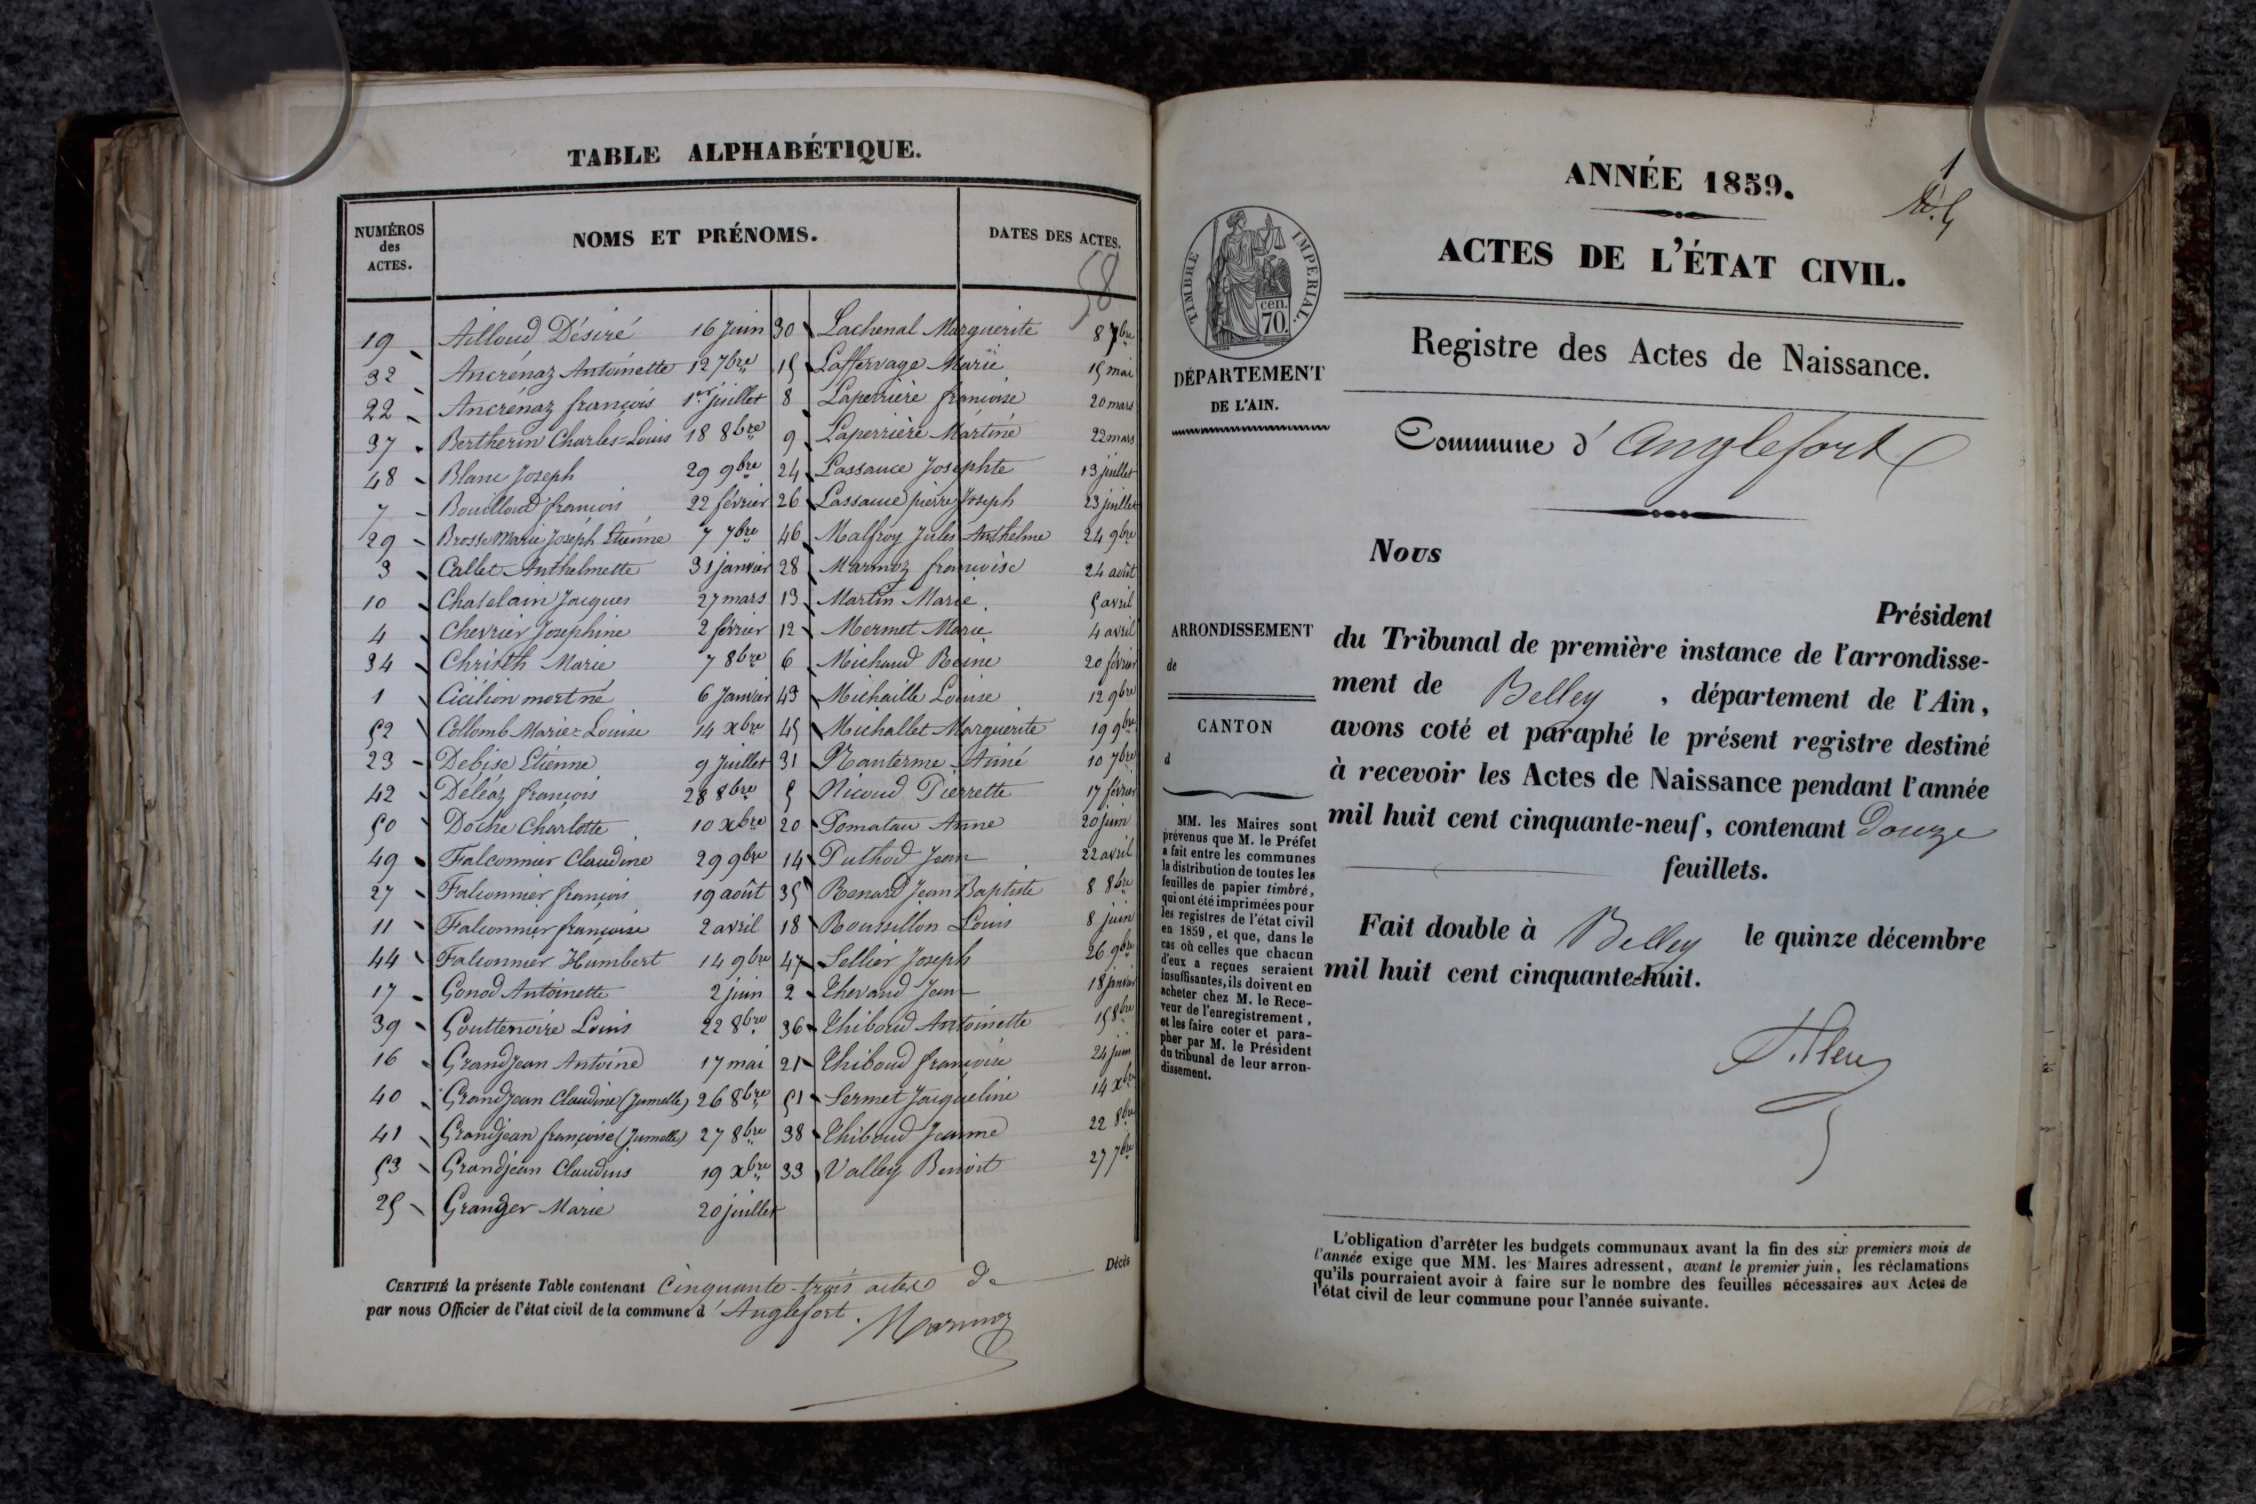 TABLE ALPHABÉTIQUE.
NUMÉROS
des
ACTES.
NOMS ET PRÉNOMS.
DATES DES ACTES.
58
19 Ailloud Désiré 16 Juin
32 Ancrénaz Antoinette 12 7bre
22 Ancrénaz françois 1er juillet
37 Bertherin Charles=Louis 18 8bre
48 Blanc Joseph 29 9bre
7 Bouilloud françois 22 février
29 Brosse Marie Joseph Etienne 7 7bre
3 Callet Anthelmette 31 janvier
10 Chatelain Jacques 27 mars
4 Chevrier Joséphine 2 février
34 Christh Marie 7 8bre
1 Cicilion mort né 6 Janvier
52 Collomb Marie=Louise 14 xbre
23 Debise Etienne 9 Juillet
42 Déléaz françois 28 8bre
50 Doche Charlotte 10 xbre
49 Falconnier Claudine 29 9bre
27 Falconnier françois 19 août
11 Falconnier françoise 2 avril
44 Falconnier Humbert 14 9bre
17 Gonod Antoinette 2 juin
39 Gouttenoire Louis 22 8bre
16 Grandjean Antoine 17 mai
40 Grandjean Claudine (Jumelle) 26 8bre
41 Grandjean françoise (Jumelle) 27 8bre
53 Grandjean Claudius 19 xbre
25 Granger Marie 20 juillet
30 Lachenal Marguerite 8 7bre
15 Laffervage Marie 15 mai
8 Laperrière françoise 20 mars
9 Laperrière Martine 22 mars
24 Lassauce Josephte 13 juillet
26 Lassauce pierre Joseph 23 juillet
46 Malfroy Jules Anthelme 24 9bre
28 Marmoz françoise 24 août
13 Martin Marie 5 avril
12 Mermet Marie 4 avril
6 Michaud Reine 20 février
43 Michaille Louise 12 9bre
45 Michallet Marguerite 19 9bre
31 Nanterme Aimé 10 7bre
5 Nicoud Pierrette 17 février
20 Pomatau Anne 20 juin
14 Puthod Jean 22 avril
35 Renard Jean Baptiste 8 8bre
18 Roussillon Louis 8 juin
47 Sellier Joseph 26 9bre
2 Thevand Jean 18 janvier
36 Thiboud Antoinette 15 8bre
21 Thiboud françoise 24 juin
51 Sermet Jacqueline 14 xbre
38 Thiboud Jeanne 22 8bre
33 Valley Benoit 27 7bre
CERTIFIÉ la présente Table contenant Cinquante-trois actes de Décès
par nous Officier de l'état civil de la commune d'Anglefort. Marmoz
1
ANNÉE 1859.
ACTES DE L'ÉTAT CIVIL.
TIMBRE IMPERIAL.
cen.
70.
DÉPARTEMENT
DE L'AIN.
Registre des Actes de Naissance.
Commune d'Anglefort
ARRONDISSEMENT
de
CANTON
d
MM. les Maires sont
prévenus que M. le Préfet
a fait entre les communes
la distribution de toutes les
feuilles de papier timbré,
qui ont été imprimées pour
les registres de l'état civil
en 1859, et que, dans le
cas où celles que chacun
d'eux a reçues seraient
insuffisantes, ils doivent en
acheter chez M. le Rece-
veur de l'enregistrement,
et les faire coter et para-
pher par M. le Président
du tribunal de leur arron-
dissement.
Nous
Président
du Tribunal de première instance de l'arrondisse-
ment de Belley, département de l'Ain,
avons coté et paraphé le présent registre destiné
à recevoir les Actes de Naissance pendant l'année
mil huit cent cinquante-neuf, contenant douze
feuillets.
Fait double à Belley le quinze décembre
mil huit cent cinquante-huit.
L'obligation d'arrêter les budgets communaux avant la fin des six premiers mois de
l'année exige que MM. les Maires adressent, avant le premier juin, les réclamations
qu'ils pourraient avoir à faire sur le nombre des feuilles nécessaires aux Actes de
l'état civil de leur commune pour l'année suivante.